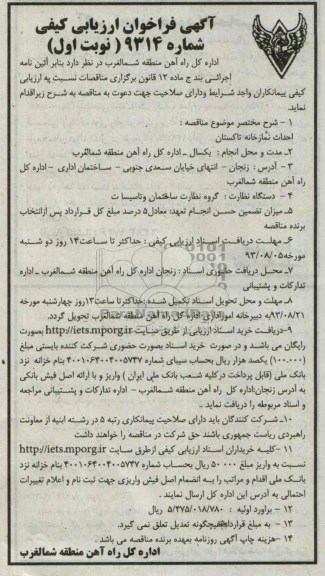 آگهی فراخوان ارزیابی کیفی
شماره ۹۳۱۴ ( نوبت اول)
اداره کل راه آهن منطقه شمالغرب در نظر دارد بنابر آئین نامه
اجرائی بند ج ماده ۱۲ قانون برگزاری مناقصات نسبت به ارزیابی
کیفی پیمانکاران واجد شرایط ودارای صلاحیت جهت دعوت به مناقصه به شرح زیراقدام
نماید.
۱ – شرح مختصر موضوع مناقصه :
احداث نمازخانه تاکستان
۲ـ مدت و محل انجام : یکسال ـ اداره کل راه آهن منطقه شمالغرب
۳ – آدرس : زنجان – انتهای خیابان سعدی جنوبی – ساختمان اداری – اداره کل
راه آهن منطقه شمالغرب
۴ – دستگاه نظارت : گروه نظارت ساختمان وتاسیسات
۵ـ میزان تضمین حسن انجام تعهد: معادل۵ درصد مبلغ کل قرارداد پس ازانتخاب
برنده مناقصه
۶ـ مهلت دریافت اسناد ارزیابی کیفی : حداکثر تا ساعت۱۴ روز دو شنبه
مورخه۹۳/۰۸/۰۵
۷ـ محل دریافت حضوری اسناد : زنجان اداره کل راه آهن منطقه شمالغرب ـ اداره
تدارکات و پشتیبانی
۸ـ مهلت و محل تحویل اسناد تکمیل شده :حداکثرتا ساعت۱۳روز چهارشنبه مورخه
۹۳/۰۸/۲۱به دبیرخانه اموراداری اداره کل راه آهن منطقه شمالغرب تحویل گردد.
۹ـ دریافت خرید اسناد ارزیابی از طریق سایت http://iets.mporg.ir بصورت
رایگان می باشد و در صورت خرید اسناد بصورت حضوری شرکت کننده بایستی مبلغ
(۱۰۰.۰۰۰) یکصد هزار ریال بحساب سیبای شماره ۴۰۰۱۰۶۴۰۰۴۰۰۵۷۴۷ بنام خزانه نزد
بانک ملی (قابل پرداخت درکلیه شعب بانک ملی ایران ) واریز و با ارائه اصل فیش بانکی
به آدرس زنجان:اداره کل راه آهن منطقه شمالغرب – اداره تدارکات و پشتیبانی مراجعه
و اسناد مربوطه را دریافت نماید .
۱۰ـ شرکت کنندگان باید دارای صلاحیت پیمانکاری رتبه ۵ در رشته ابنیه از معاونت
راهبردی ریاست جمهوری باشند حق شرکت در مناقصه را خواهند داشت
۱۱ –کلیه خریداران اسناد ارزیابی کیفی ازطرق سایت http://iets.mporg.ir
نسبت به واریز مبلغ ۵۰۰۰۰ ریال بحساب شماره ۴۰۰۱۰۶۴۰۰۴۰۰۵۷۴۷ بنام خزانه نزد
بانک ملی اقدام و مراتب را به انضمام اصل فیش واریزی جهت ثبت نام و اعلام تغییرات
احتمالی به آدرس این اداره کل ارسال نمایند .
۱۲ – براورد اولیه : ۵/۴۷۵/۰۱۸/۷۸۰ ریال
۱۳ – به مبلغ قرارداد هیچگونه تعدیل تعلق نمی گیرد.
۱۴ –هزینه چاپ آگهی روزنامه بعهده برنده مناقصه می باشد .
اداره کل راه آهن منطقه شمالغرب